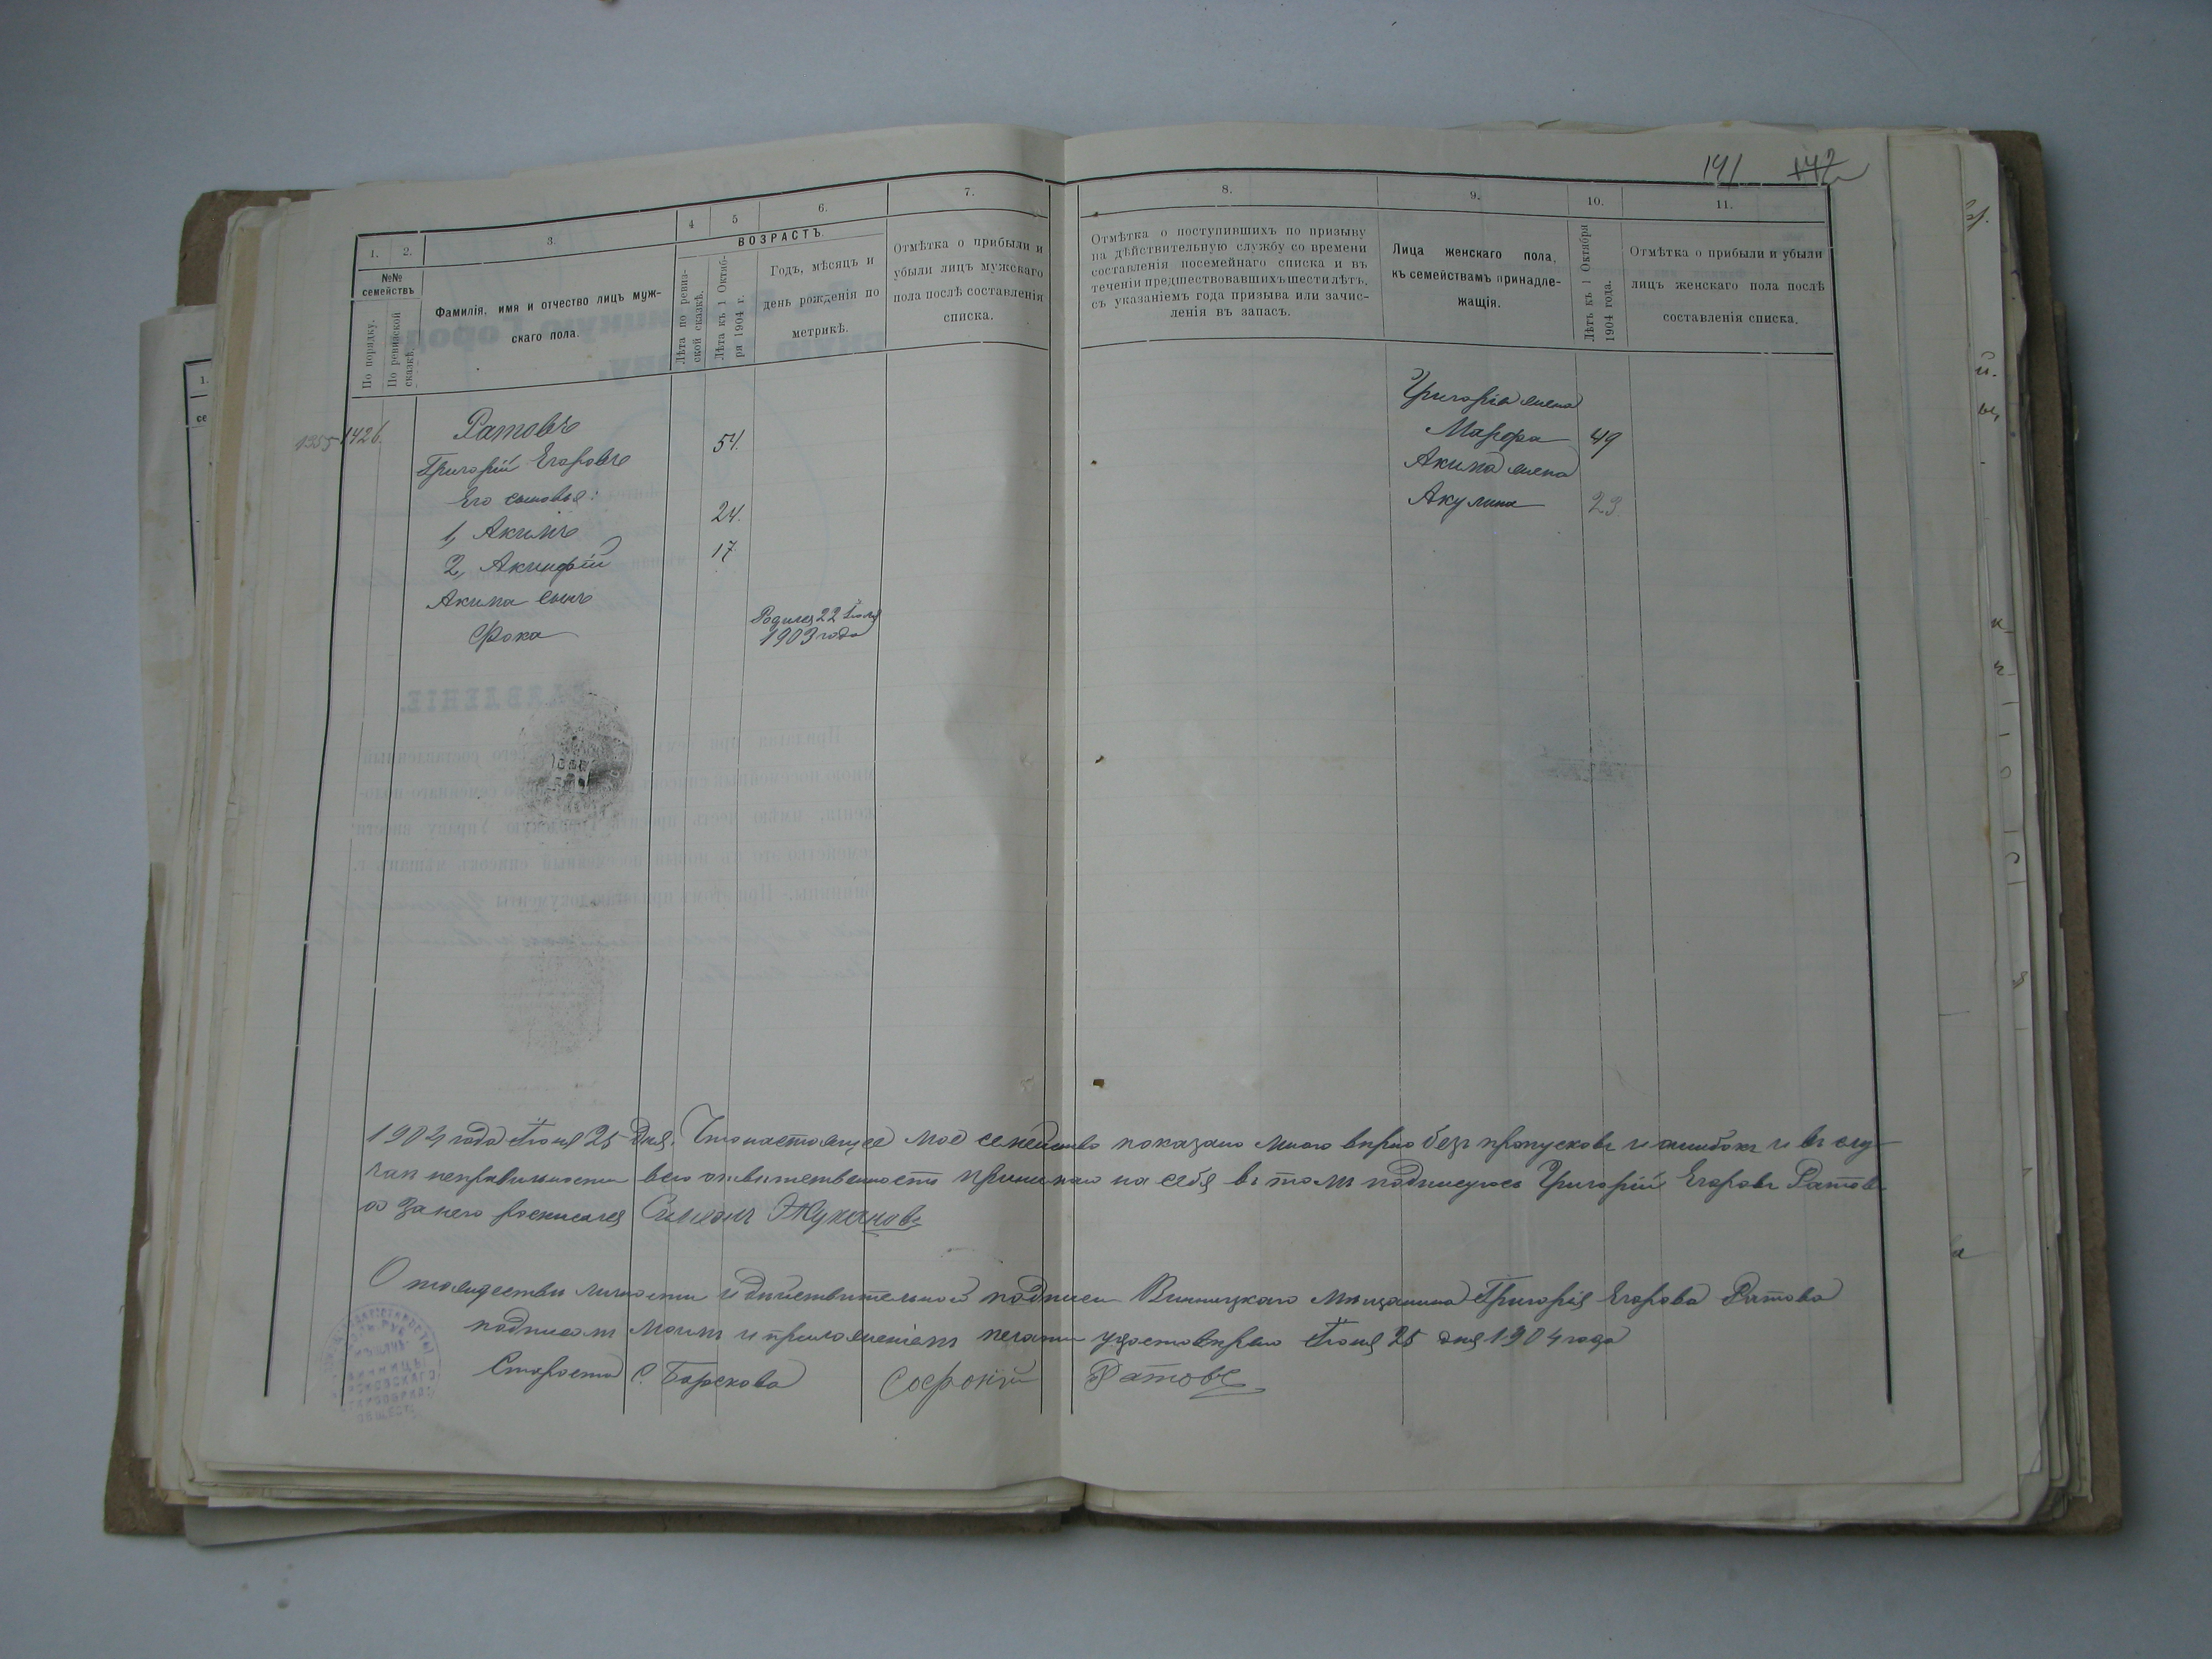 141 142
1. 2. 3. 4 5 6. 7.
ВОЗРАСТЪ.
№№ семействъ
По порядку.
По ревизской сказкѣ.
Фамилія, имя и отчество лицъ муж-
скаго пола.
Лѣта по ревиз-
ской сказкѣ.
Лѣта къ 1 Октяб-
ря 1904 г.
Годъ, мѣсяцъ и
день рожденія по
метрикѣ.
Отмѣтка о прибыли и
убыли лицъ мужскаго
пола послѣ составленія
списка.
8. 9. 10. 11.
Отмѣтка о поступившихъ по призыву
на дѣйствительную службу со времени
составленія посемейнаго списка и въ
теченіи предшествовавшихъ шести лѣтъ,
съ указаніемъ года призыва или зачис-
ленія въ запасъ.
Лица женскаго пола,
къ семействамъ принадле-
жащія.
Лѣтъ къ 1 Октября
1904 года.
Отмѣтка о прибыли и убыли
лицъ женскаго пола послѣ
составленія списка.
1355 1426. Ратовъ
Григорій Егоровъ 54.
Его сыновья:
1, Акимъ 24.
2, Акинфій 17.
Акима сынъ
Фока Родился 22 Іюля
1903 года
Григорія жена
Марфа 49
Акима жена
Акулина 23
1904 года Іюня 25 дня. Что настоящее мое семейство показано мною вѣрно безъ пропусковъ и ошибокъ и въ слу-
чаи неправильности всю отвѣтственность принимаю на себя въ томъ подписуюсь Григорій Егоровъ Ратовъ
а за него росписался Симеонъ
О тождествѣ личности и дѣйствительной подписи Винницкаго мѣщанина Григорія Егорова Ратова
подписом моимъ и приложеніемъ печати удостовѣряю Іюня 25 дня 1904 года
Староста С. Борскова Софоній Ратовъ